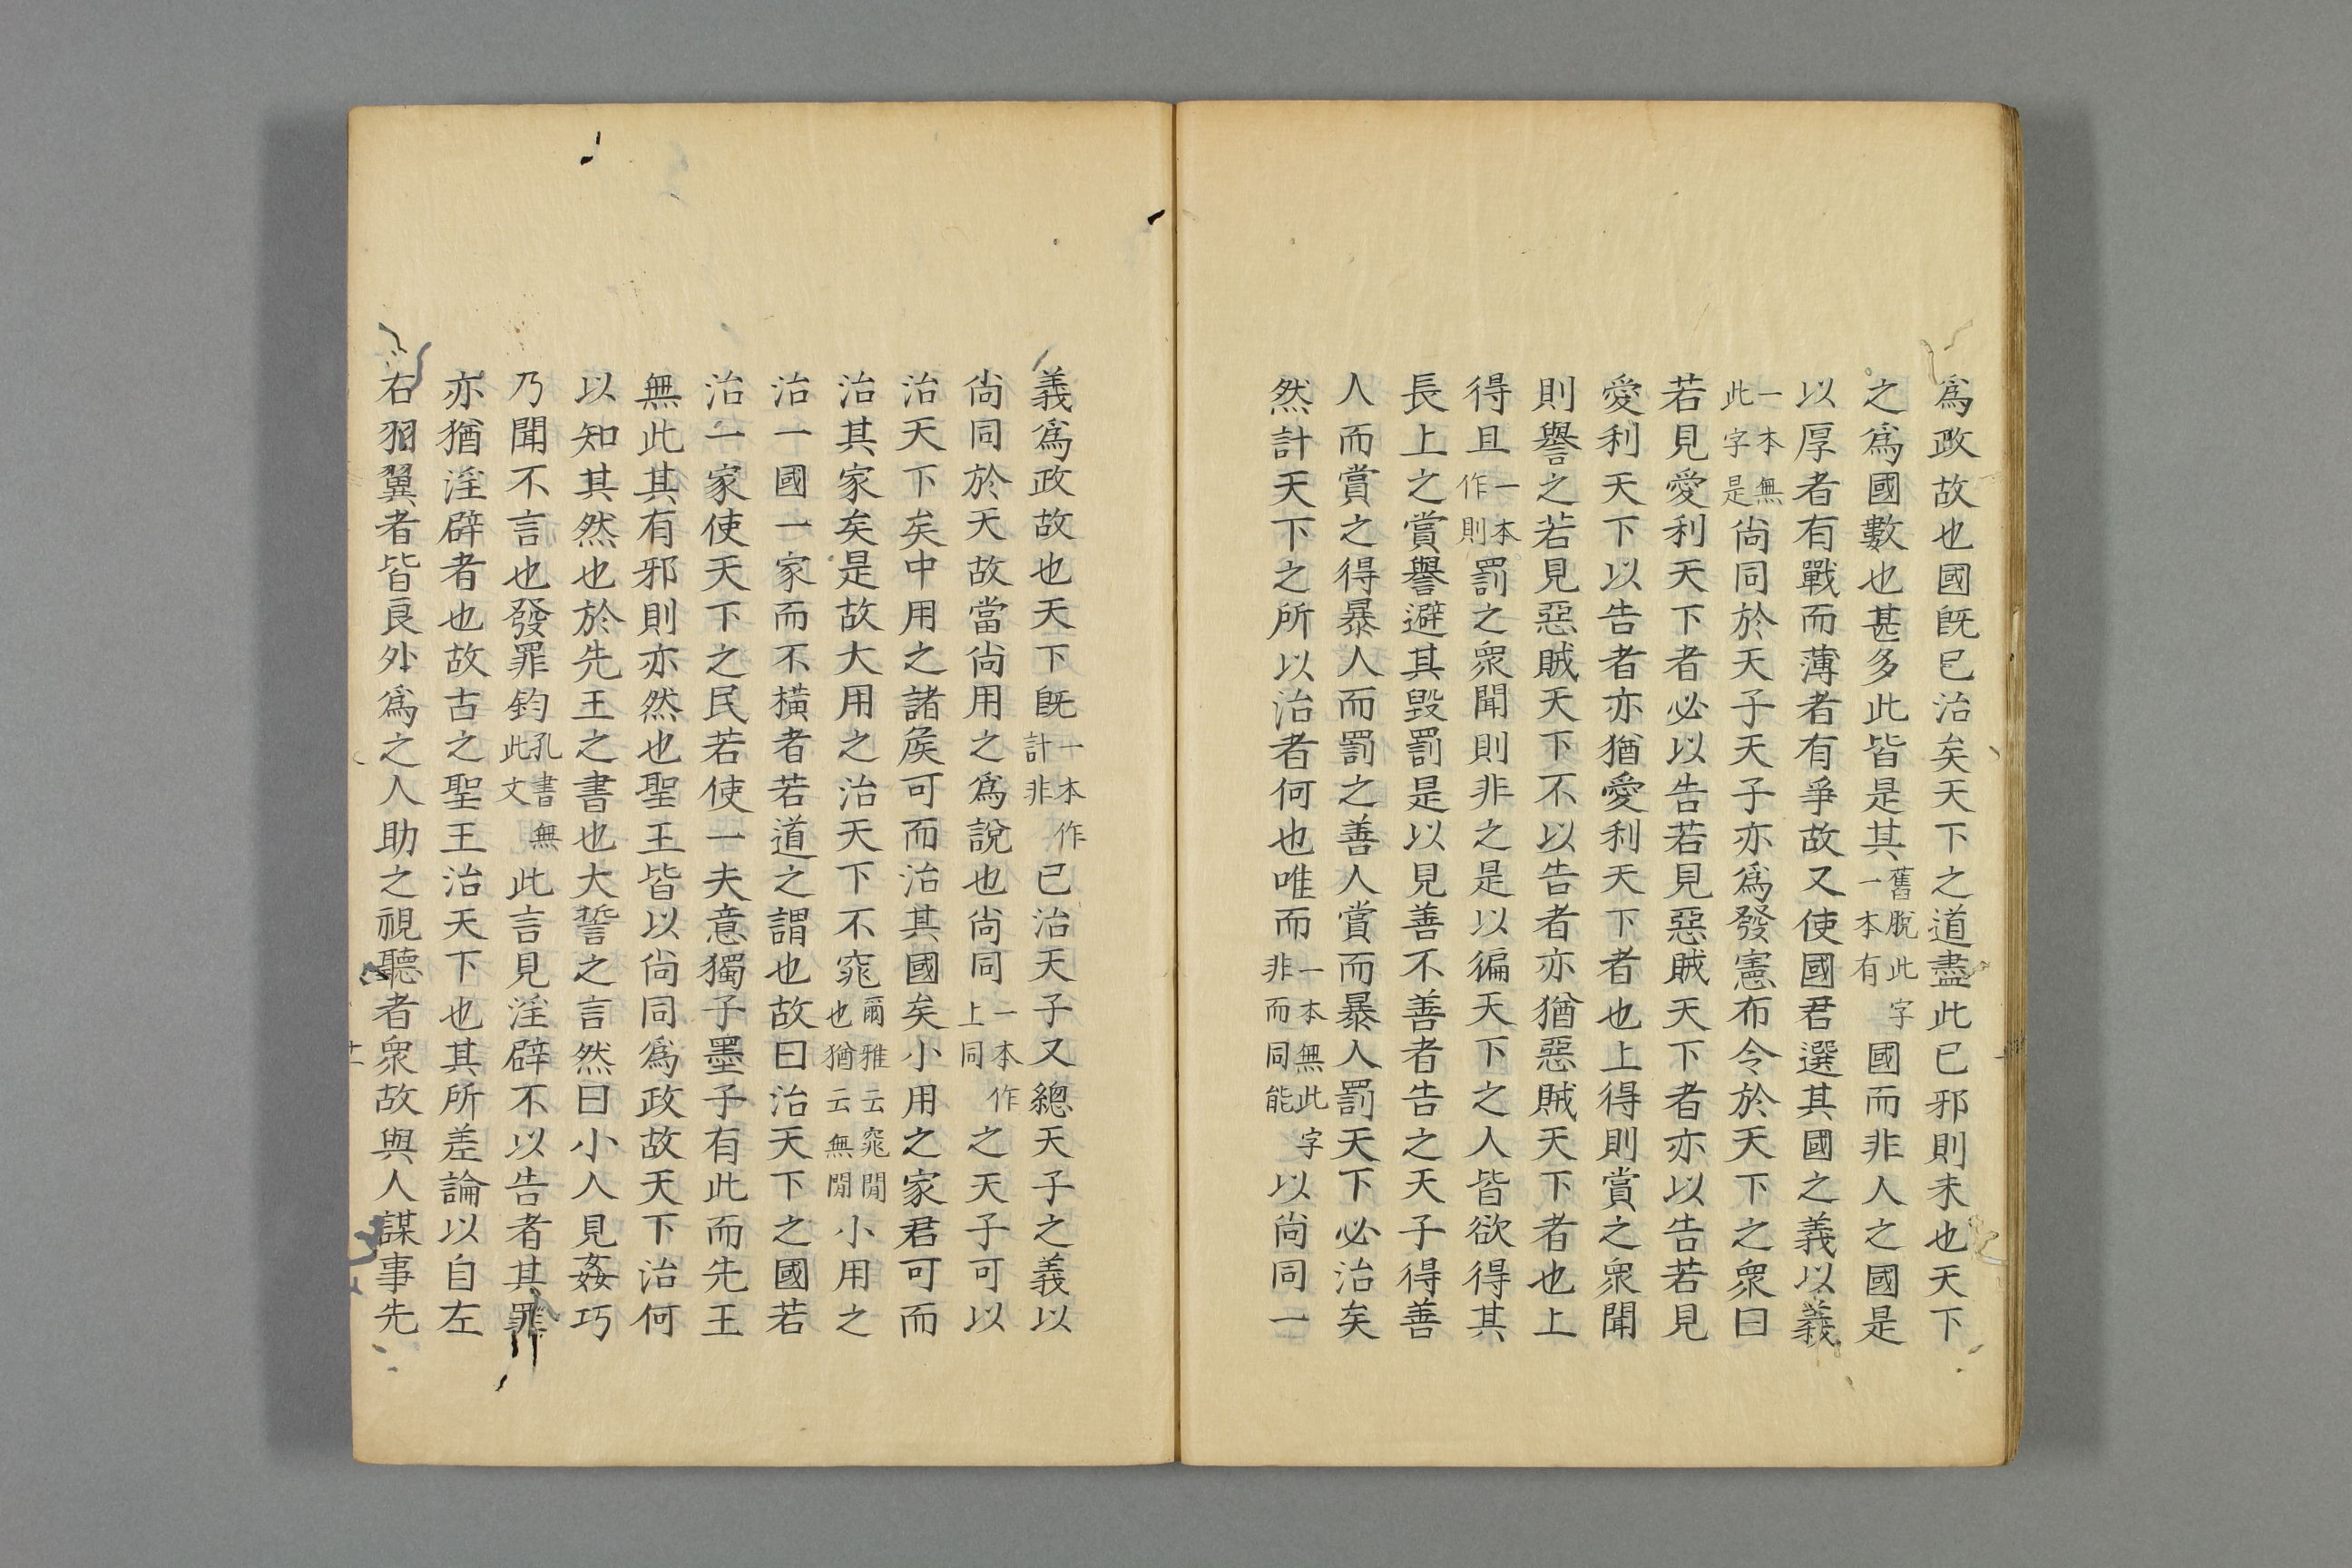 爲政故也國旣已治矣天下之道盡此已邪則未也天下
之爲國數也甚多此皆是其舊脫此字一本有國而非人之國是
以厚者有戰而薄者有爭故又使國君選其國之義以義
一本無此字是尙同於天子天子亦爲發憲布令於天下之衆曰
若見愛利天下者必以告若見惡賊天下者亦以告若見
愛利天下以告者亦猶愛利天下者也上得則賞之衆聞
則譽之若見惡賊天下不以告者亦猶惡賊天下者也上
得且一本作則罰之衆聞則非之是以徧天下之人皆欲得其
長上之賞譽避其毀罰是以見善不善者告之天子得善
人而賞之得暴人而罰之善人賞而暴人罰天下必治矣
然計天下之所以治者何也唯而一本無此字非而同能以尙同一
義爲政故也天下旣一本作計非已治天子又總天子之義以
尙同於天故當尙用之爲說也尙同一本作上同之天子可以
治天下矣中用之諸侯可而治其國矣小用之家君可而
治其家矣是故大用之治天下不窕爾雅云窕閒也猶云無閒小用之
治一國一家而不橫者若道之謂也故曰治天下之國若
治一家使天下之民若使一夫意獨子墨子有此而先王
無此其有邪則亦然也聖王皆以尙同爲政故天下治何
以知其然也於先王之書也大誓之言然曰小人見姦巧
乃聞不言也發罪鈞孔書無此文此言見淫辟不以告者其罪
亦猶淫辟者也故古之聖王治天下也其所差論以自左
右羽翼者皆良外爲之人助之視聽者衆故與人謀事先